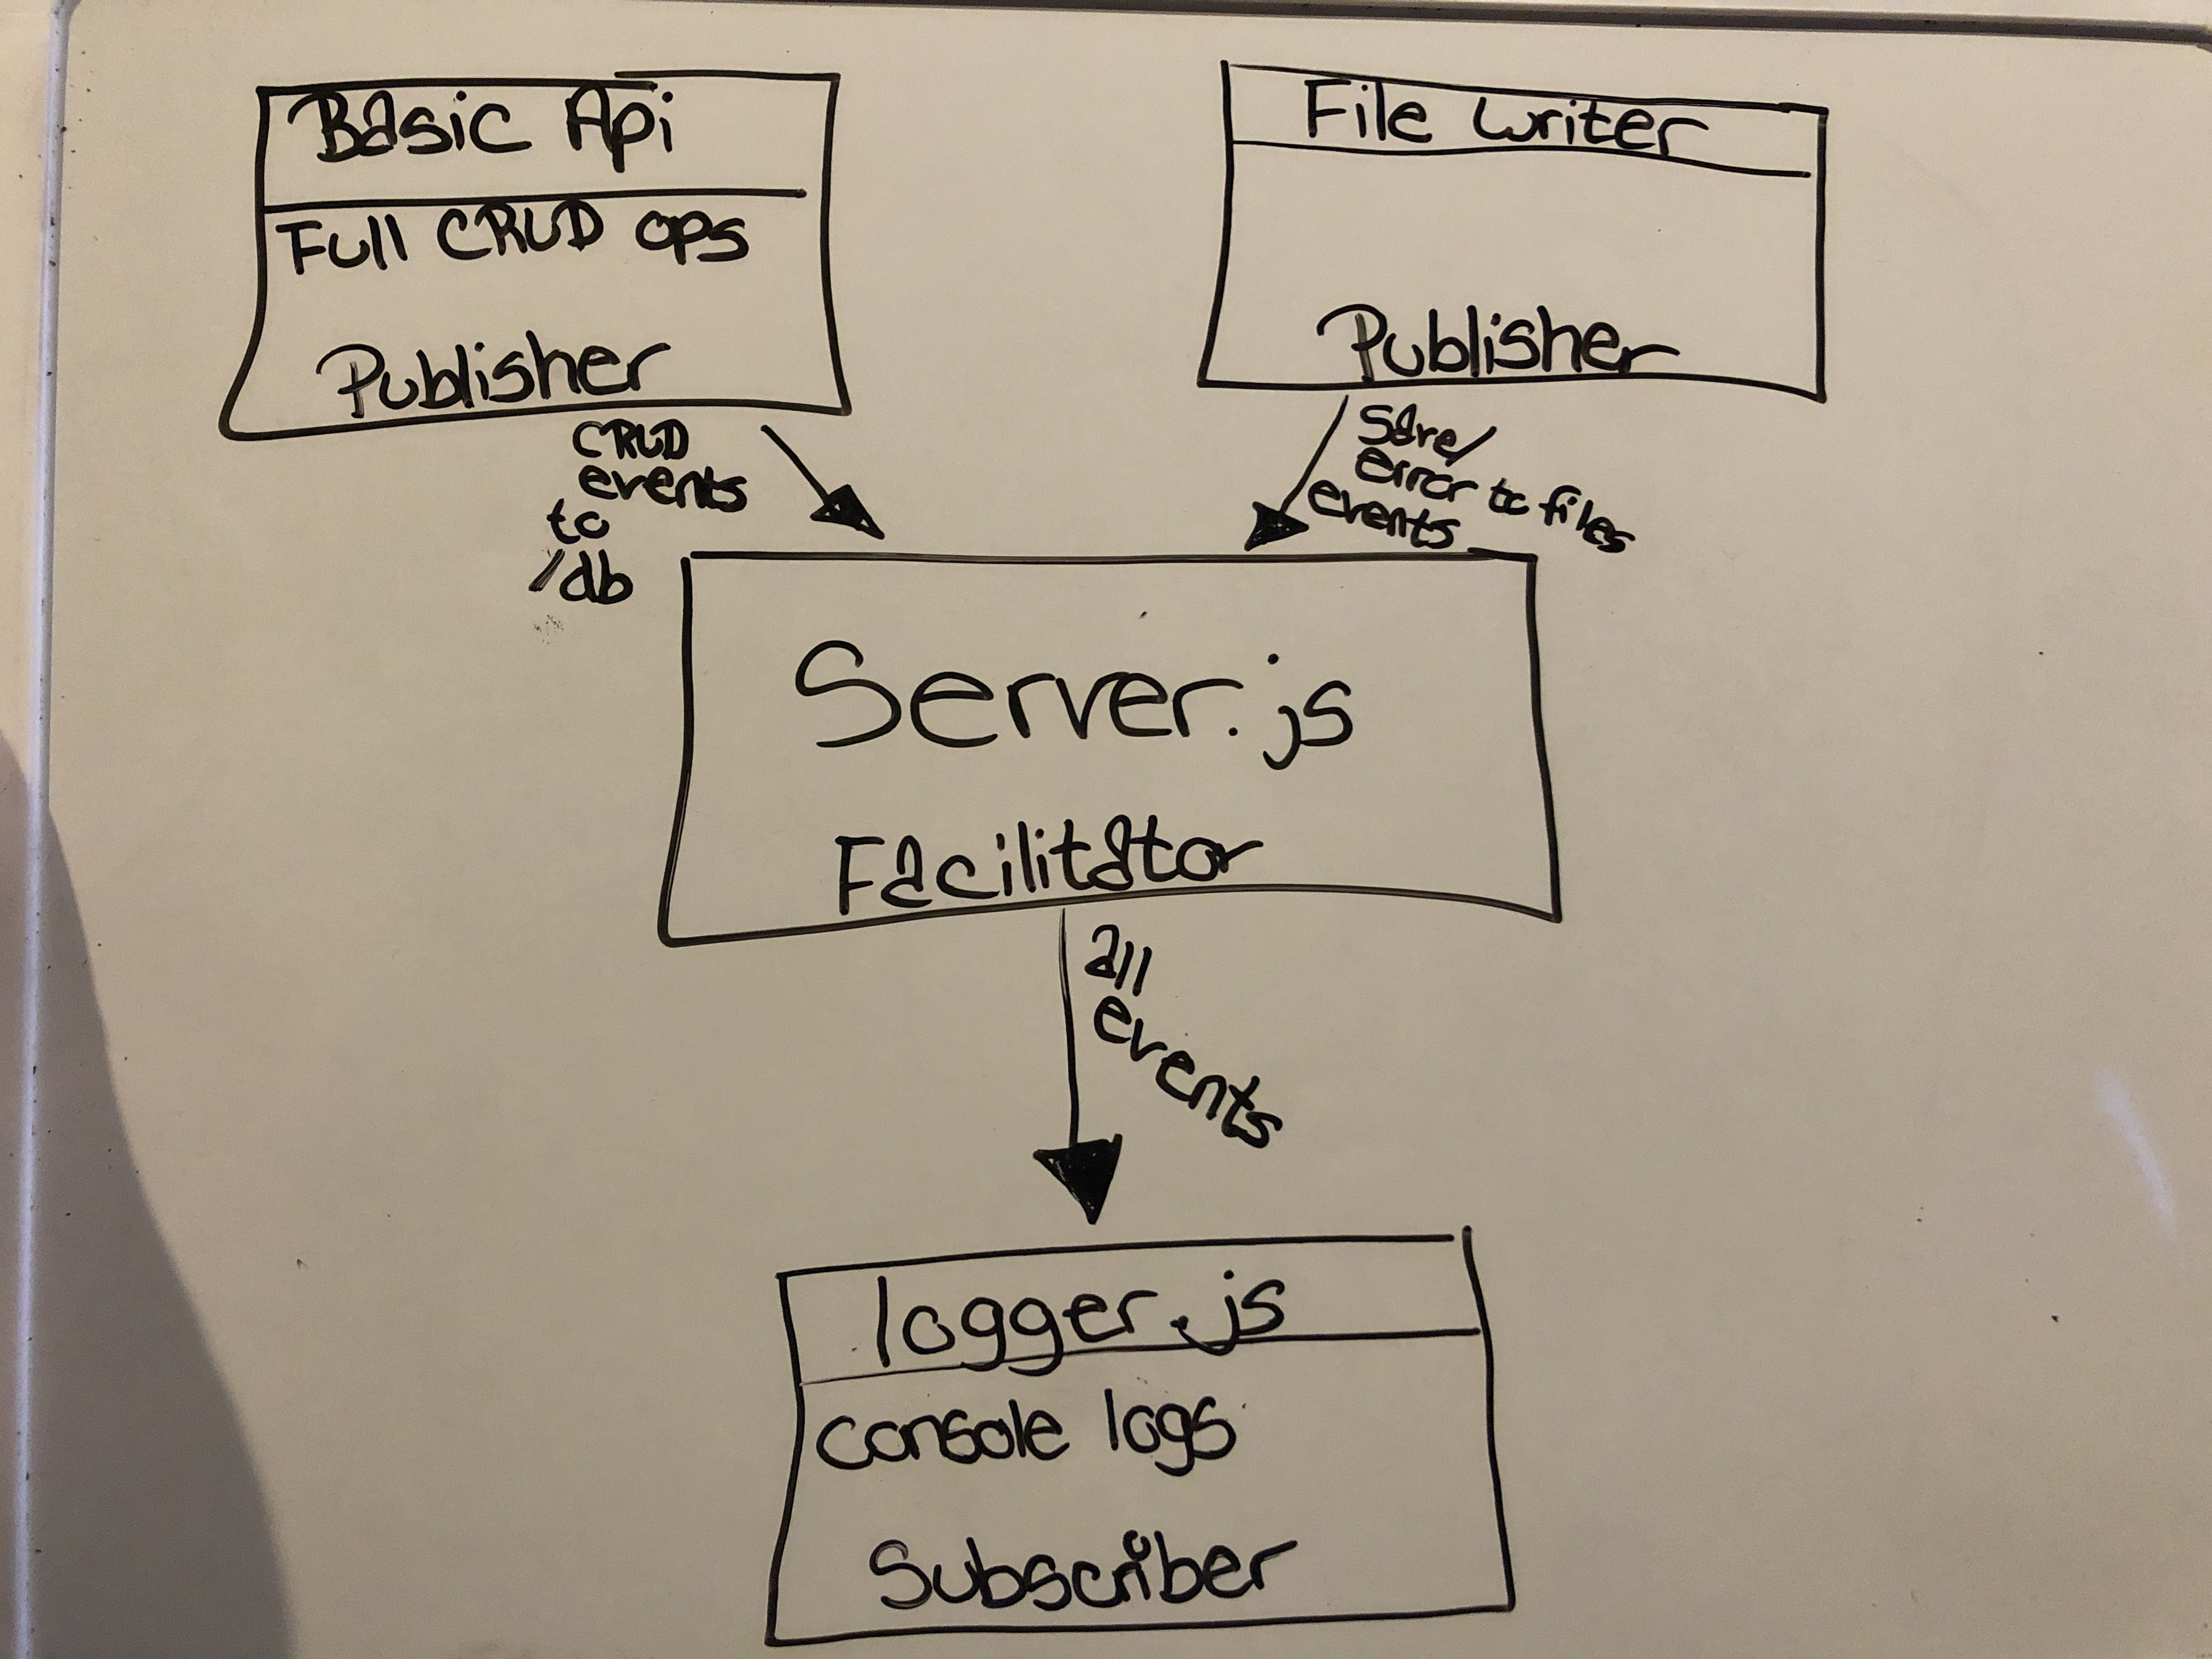 Basic Api
Full CRUD ops
Publisher
File Writer
Publisher
CRUD
events
to
/db
Save/
error to files
events
Server.js
Facilitator
all
events
logger.js
console logs
Subscriber